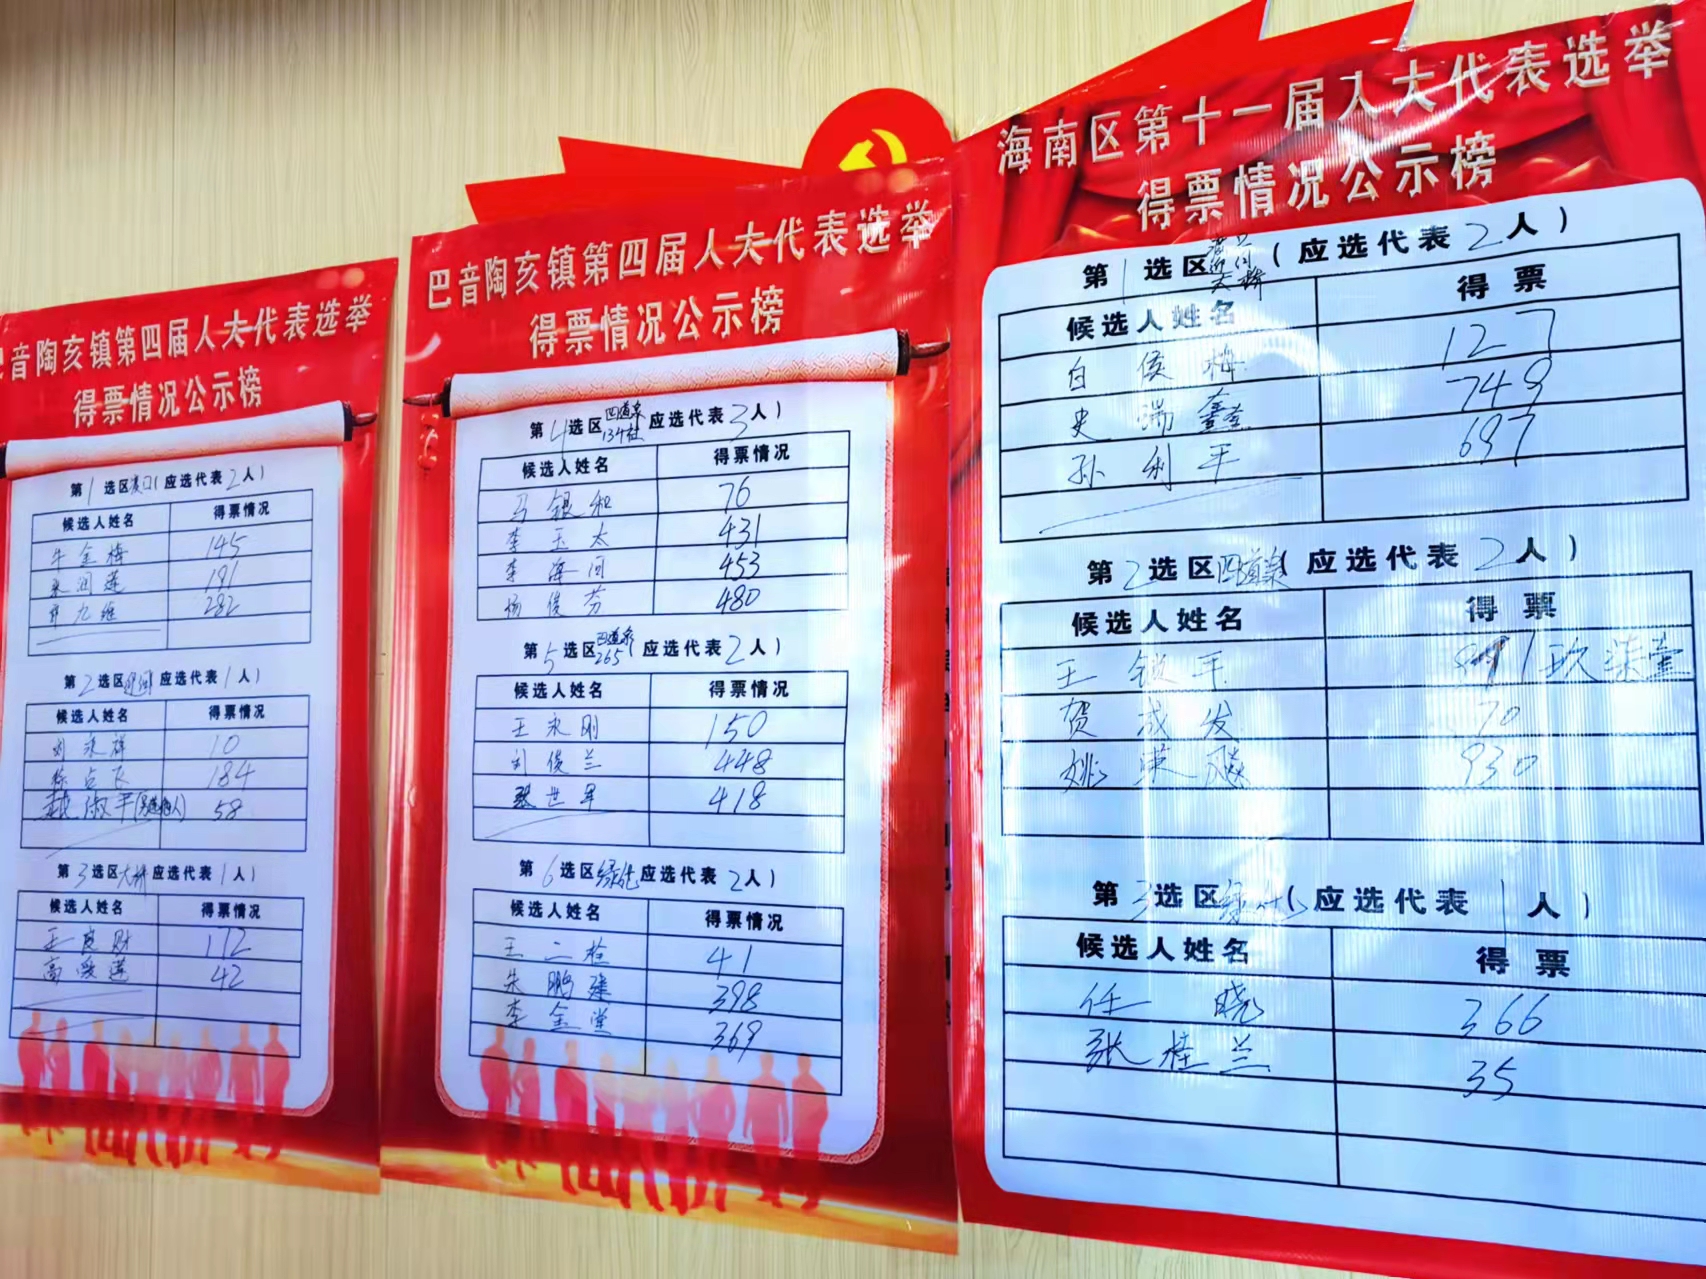 巴音陶亥镇第四届人大代表选举
得票情况公示榜
第1选区 应选代表2人)
候选人姓名 得票情况
牛金梅 145
润莲 191
九维 282
第2选区 应选代表1人)
候选人姓名 得票情况
刘永祥 10
陈占飞 184
淑平 58
第3选区大桥 应选代表1人)
候选人姓名 得票情况
王良财 172
高爱莲 42
巴音陶亥镇第四届人大代表选举
得票情况公示榜
第4选区 四道泉 134社 应选代表3人)
候选人姓名 得票情况
马银和 76
李玉太 431
李海河 453
杨俊芬 480
第5选区 四道泉 265 应选代表2人)
候选人姓名 得票情况
王永刚 150
刘俊兰 448
张世军 418
第6选区绿化 应选代表2人)
候选人姓名 得票情况
王二栓 41
朱鹏建 398
李金堂 369
海南区第十一届人大代表选举
得票情况公示榜
第1选区 大桥 (应选代表2人)
候选人姓名 得票
白俊梅 127
史瑞鑫 749
孙利平 697
第2选区四道泉(应选代表2人)
候选人姓名 得票
王锁平 971玖柒壹
贺成发 70
姚荣飚 930
第3选区绿化(应选代表1人)
候选人姓名 得票
任晓 366
张桂兰 35